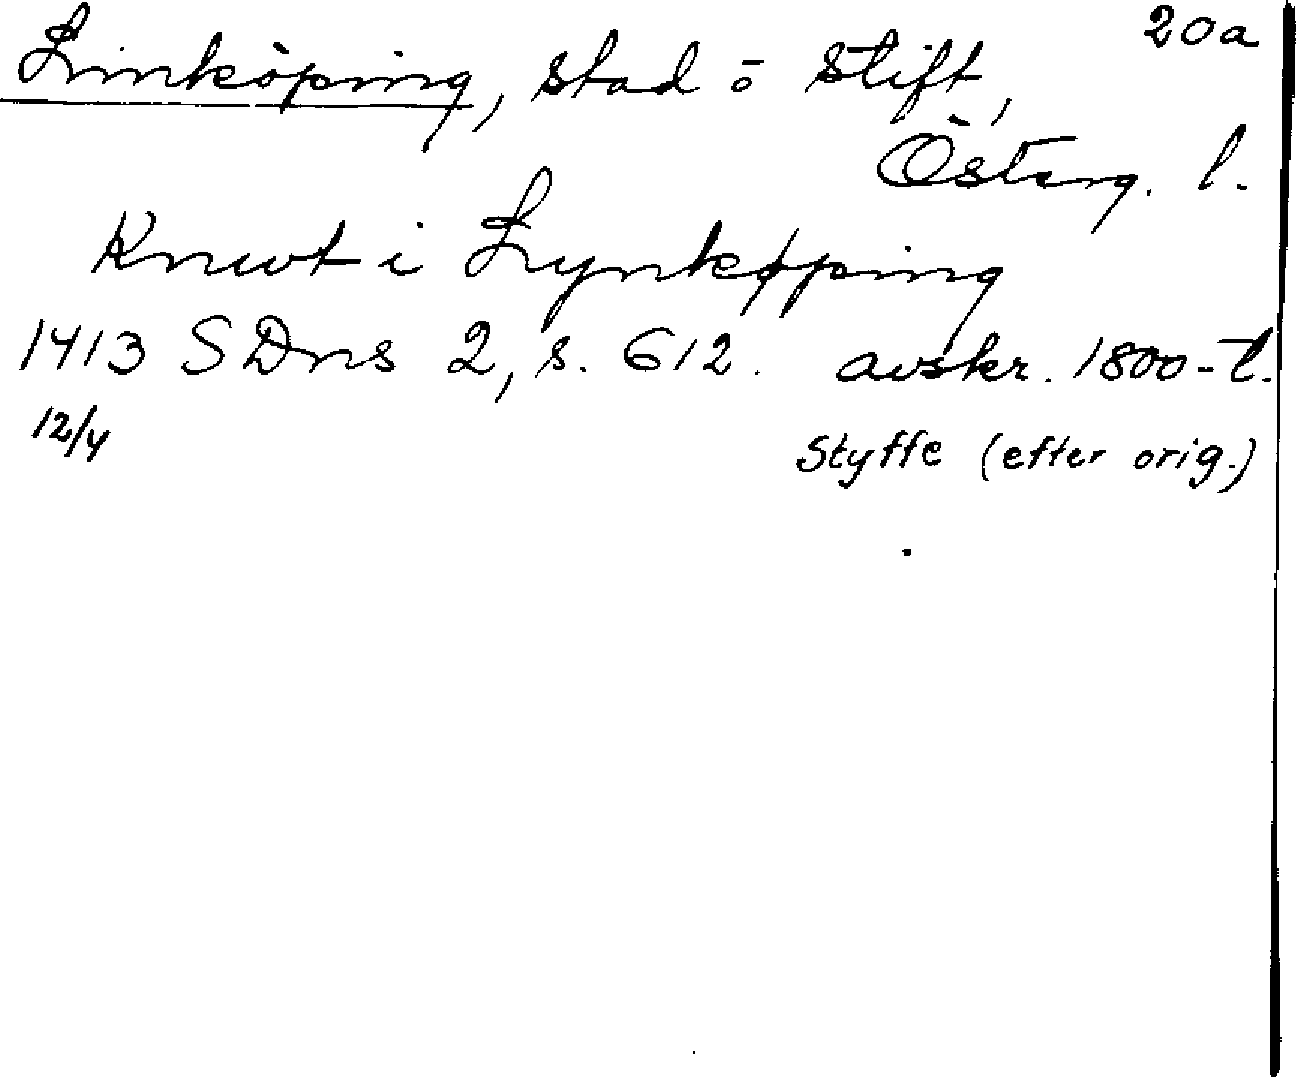 20a
Linköping, stad o stift,
Österg. l.
Knwt i Lynkøping
1413 SDns 2, s. 612. avskr. 1800-t.
12/4 Styffe (efter orig.)